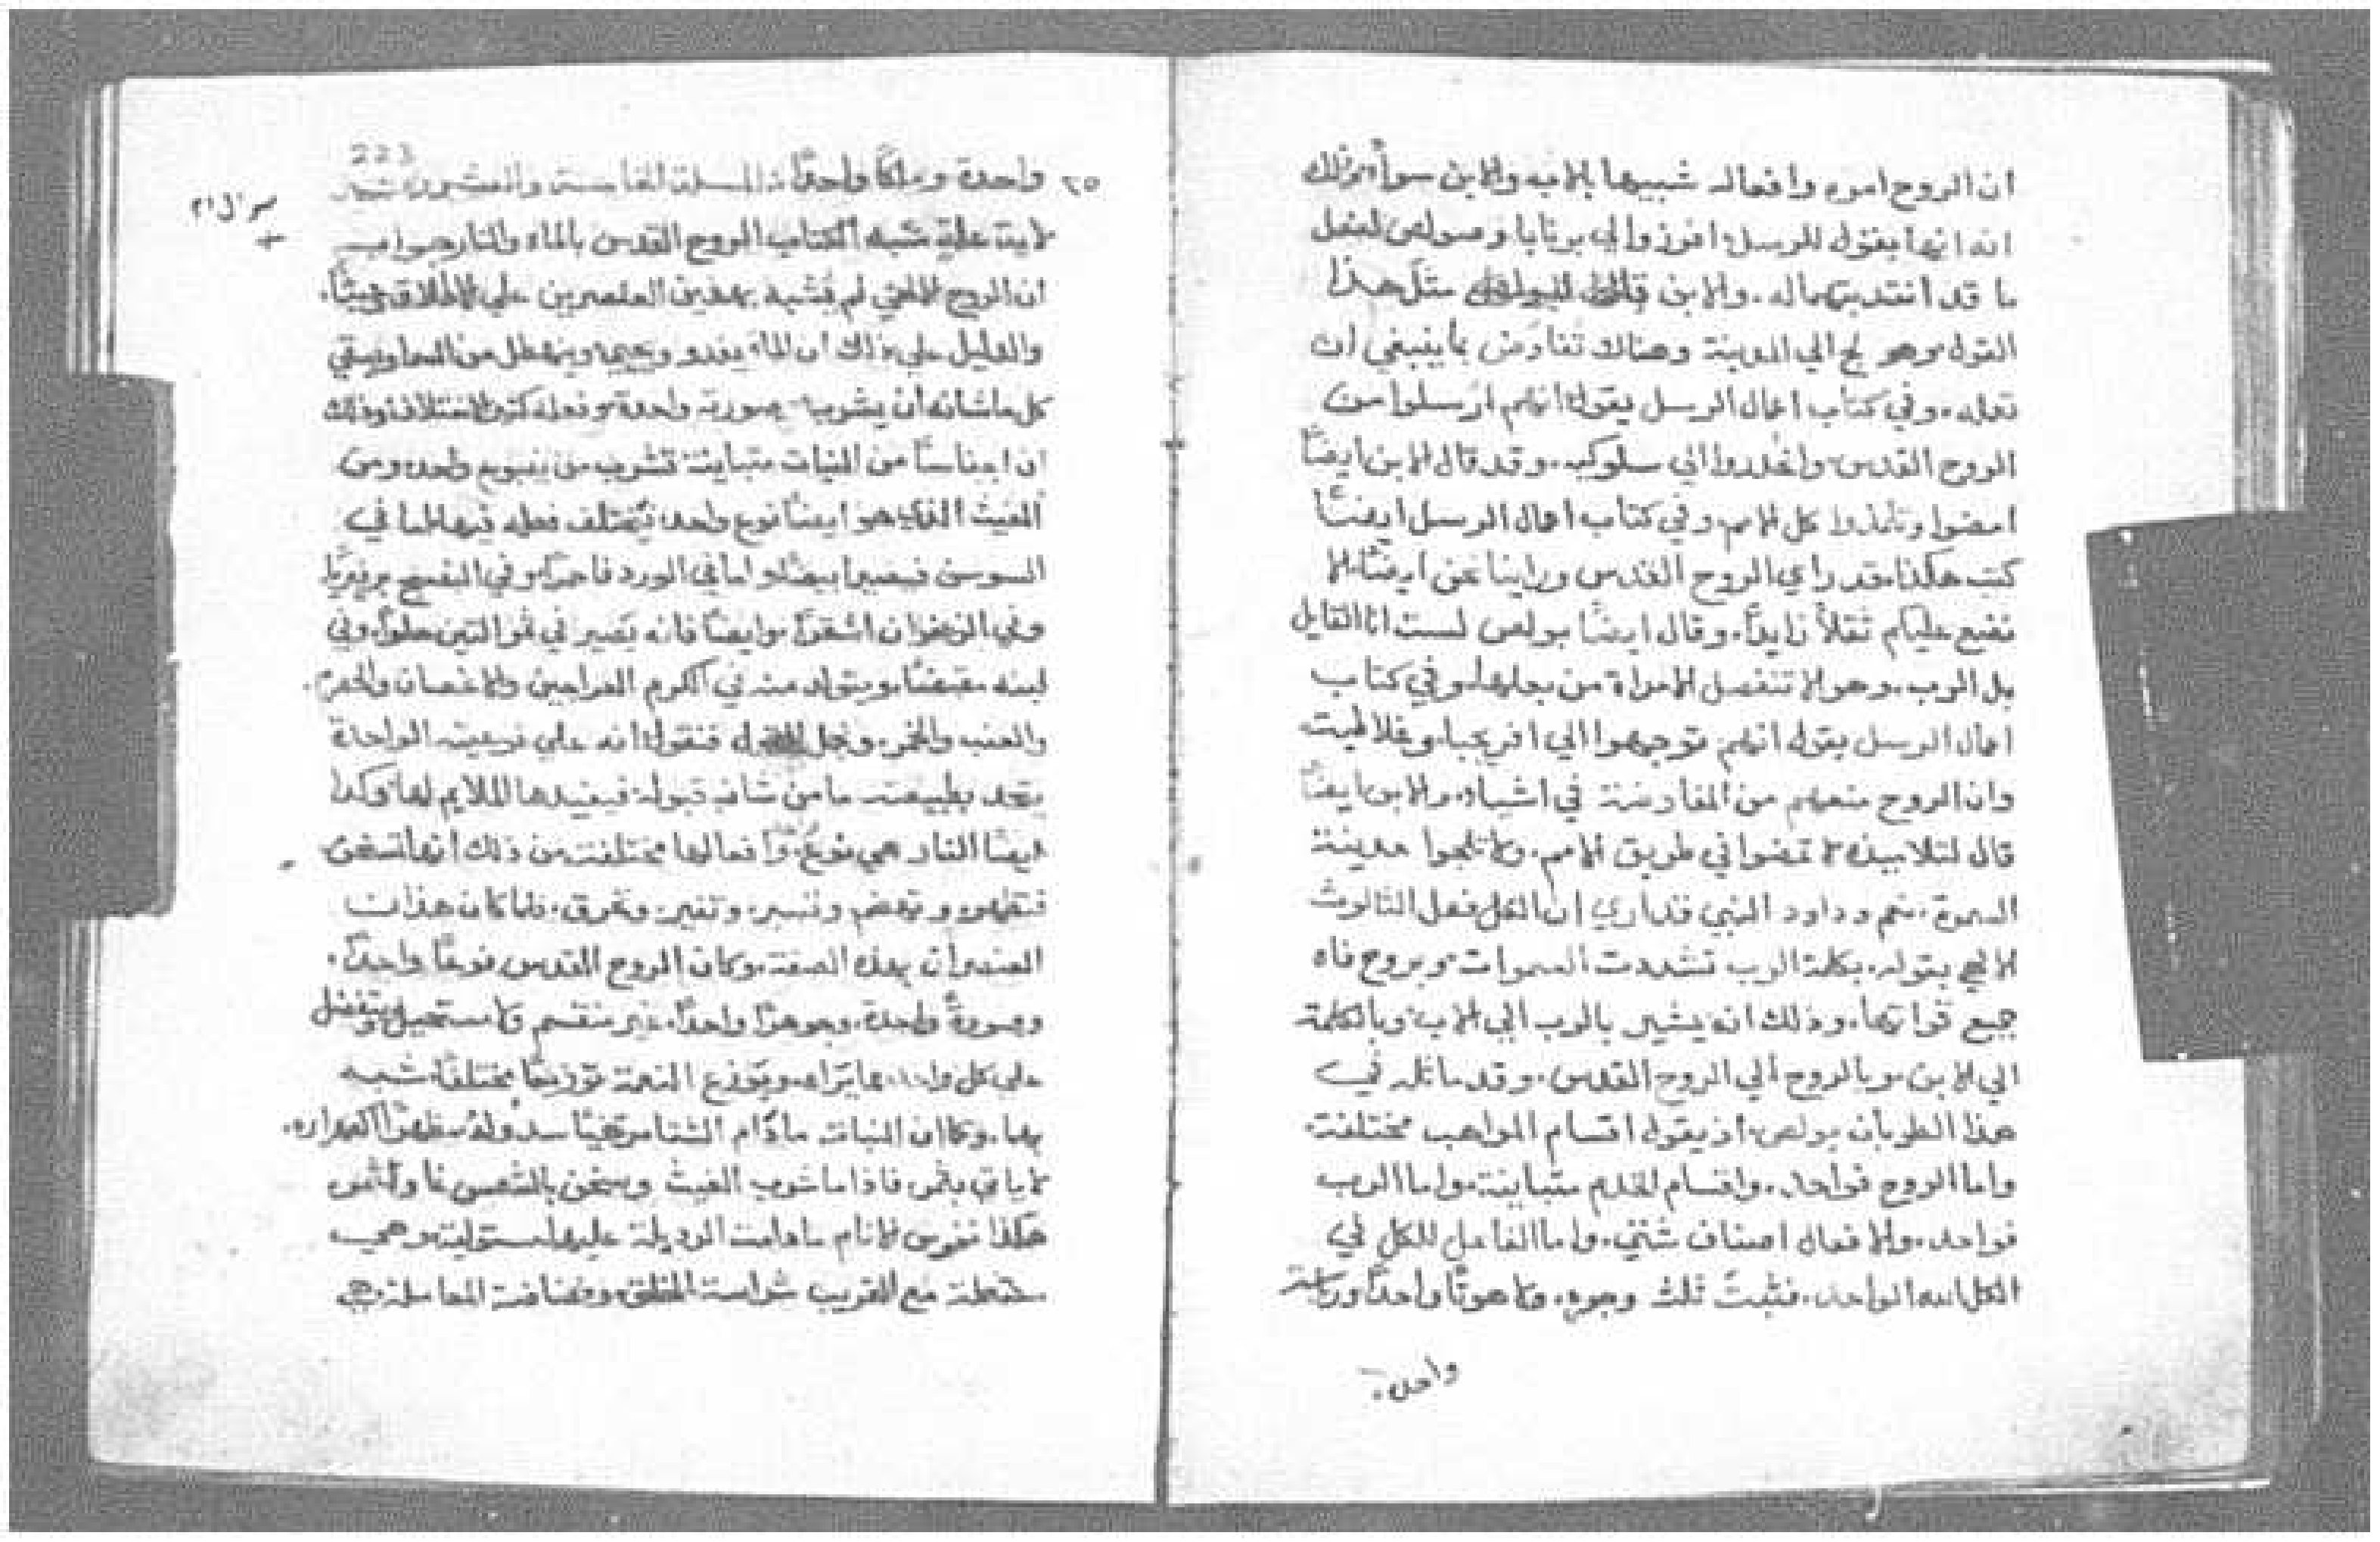 ان الروح اموره وافعاله شبيها بالاب والابن سوآ من ذلك
انه انما يقول للرسل افرزوا لي برنابا وصولص لفعل
ما قد انتدبتهما له. والابن قال لبولص مثل هذا
القول وهو لج الي المدينة وهناك تفاوض بما ينبغي ان
تعمله. وفي كتاب اعمال الرسل يقول انهم ارسلوا من
الروح القدس وانحدروا الي سلوكيه. وقد قال الابن ايضاً
امضوا وتلمذوا كل الامم وفي كتاب اعمال الرسل ايضاً
كتب هكذا قد راي الروح القدس وراينا نحن ايضاً الا
نضع عليكم ثقلاً زايداً. وقال ايضاً بولص لست انا القايل
بل الرب. وهو لا تنفصل الامراة من بعلها وفي كتاب
اعمال الرسل يقول انهم توجهوا الي افريجيا وغلاطية
وان الروح منعهم من المفاوضة في اشياء. والابن ايضاً
قال لتلاميذه لا تمضوا في طريق الامم. ولا تلجوا مدينة
السمرة. نعم وداود النبي قد اري ان الكل فعل الثالوث
الالهي بقوله. بكلمة الرب تشددت السموات وبروح فاه
جميع قواتها. وذلك انه يشير بالرب الي الاب وبالكلمة
الي الابن وبالروح الي الروح القدس. وقد ماثله في
هذا الطوبان بولص اذ يقول اقسام المواهب مختلفة.
واما الروح فواحد. واقسام الخدم متباينة واما الرب
فواحد. والافعال اصناف شتي. واما الفاعل للكل في
الكل الله الواحد. فثبت ثلث وجوه. ولاهوتاً واحداً ورياسة
واحدة.
223
٢٥ واحدة وملكاً واحداً المسلة الخامسة والعشرون
سوال ٢١
لاية علة شبه الكتاب الروح القدس بالماء والنار جواب
ان الروح الالهي لم يشبه بهذين العنصرين علي الاطلاق عبثاً.
والدليل علي ذلك ان الماء يغدو ويحيي وينهطل من السما ويسقي
كل ما شانه ان يشرب بصورة واحدة وفعله كثير الاختلاف وذلك
ان اجناساً من النبات متباينة تشرب من ينبوع واحد ومن
الغيث الذي هو ايضاً نوع واحد يختلف فعله فيها اما في
السوسن فيصير ابيضاً واما في الورد فاحمراً وفي البنفسج برفيرياً
وفي الزعفران اشقراً وايضاً فانه يصير في ثمر التين حلواً وفي
لبنه مقبضاً ويتولد منه في الكرم العراجين والاغصان والحصرم.
والعنب والخمر. ونجمل القول فنقول انه علي نوعيته الواحدة
يتحد بطبيعة ما من شانه قبوله فيفيدها الملايم لها وكذا
ايضاً النار هي نوع وافعالها مختلفة من ذلك انها تسخن
فتطهر وتهضم وتسبر. وتنير. وتحرق. فلما كان هذان
العنصران بهذه الصفة وكان الروح القدس نوعاً واحداً.
وصورةً واحدة. وجوهراً واحداً. غير منقسم ولا مستحيل ويتفضل
علي كل واحد بما يراه. ويوزع النعمة توزيعاً مختلفاً شبه
بهما. وكما ان النبات مادام الشتا
لا ياتي بثمر. فاذا ما شرب الغيث وسخن بالشمس نما واثمر
هكذا نفوس الانام ما دامت الرديلة عليها مستولية وهي
مع القريب شراسة الخلق المعاملة